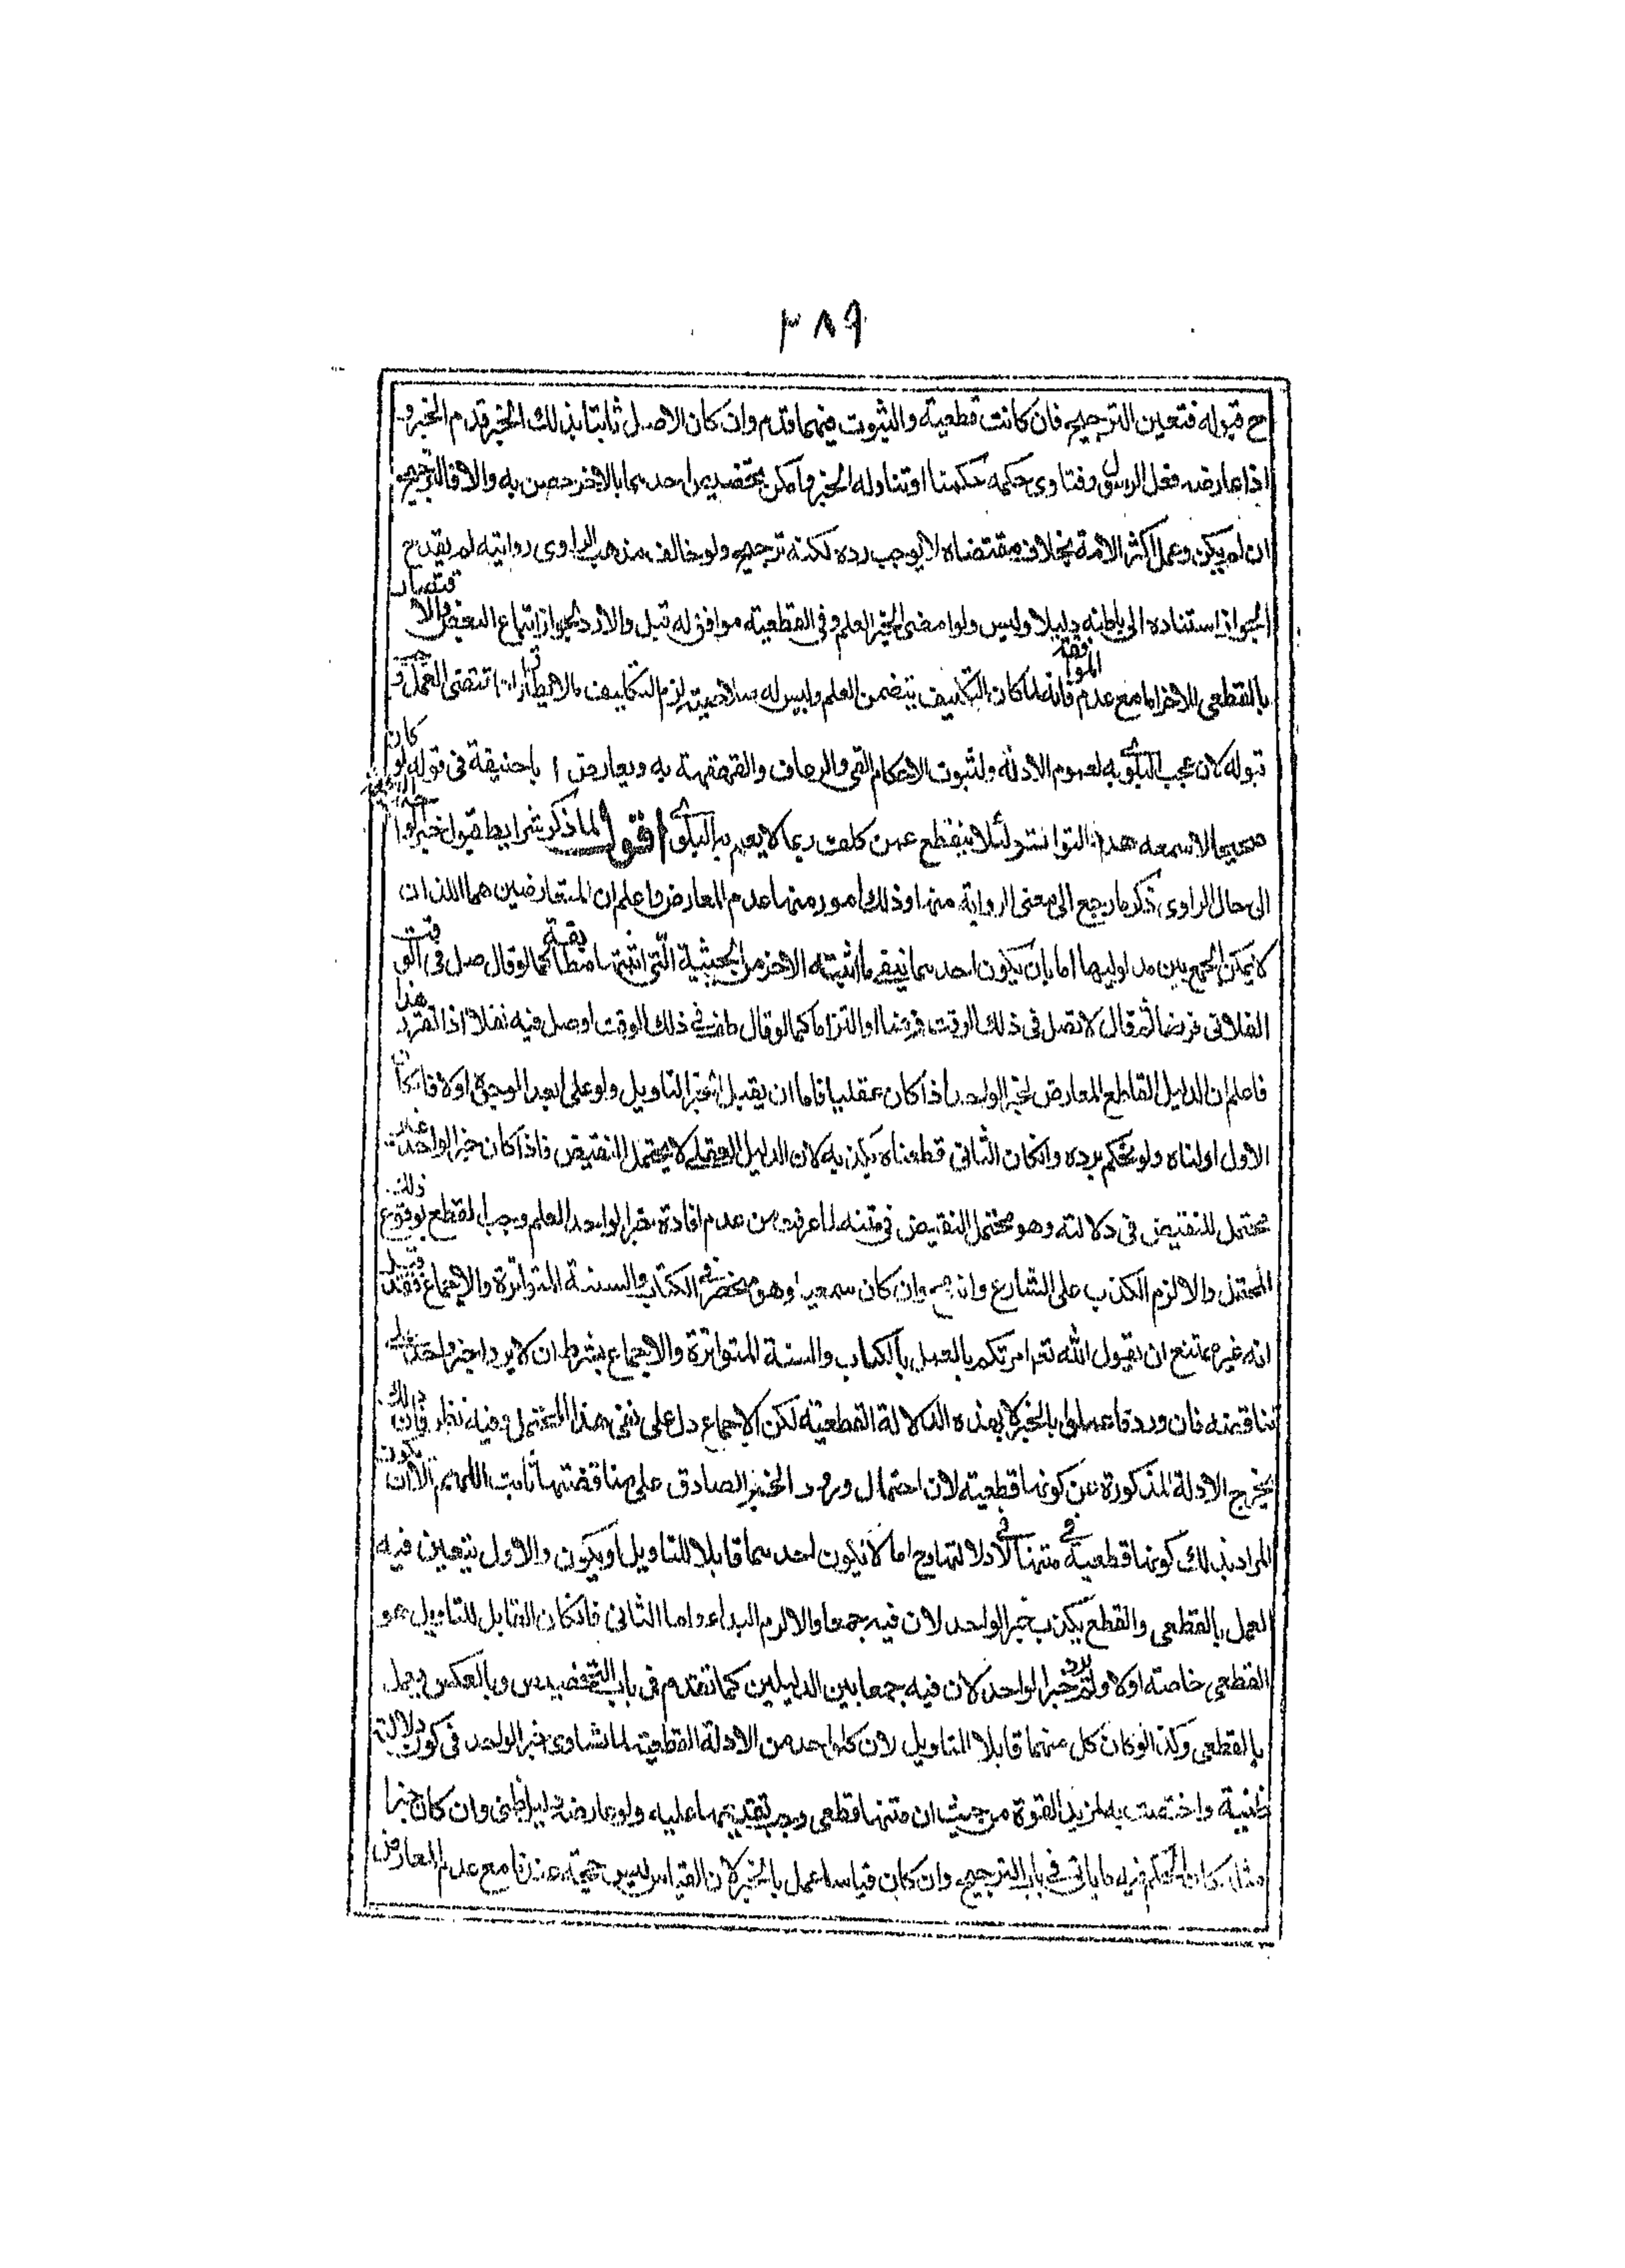 ٢٨٩
ح قبوله فتعين الترجيح فان كانت قطعية والثبوت فيهما قدم وان كان الاصل ثابتا بذلك الخبر قدم الخبر و
اذا عارضه فعل الرسول وفتاوى حكمه حكمنا او تناوله الخبر وامكن تخصيص احدهما بالاخر خصص به والا فالترجيح
ان لم يكن وعمل اكثر الامة بخلاف مقتضاه لا يوجب رده لكنه ترجيح ولو خالف مذهب الراوى روايته لم يقدح
لجواز استناده الى ما ظنه دليلا وليس ولو اقتضى الخبر العلم وفى القطعية موافق له قبل والا رد لجواز اسماع البعض والاقتصار
بالقطعى الاخر اما مع عدم الموافقة فانه لما كان التكليف يتضمن العلم وليس له صلاحيته لزم التكليف بالا يطاق اذا اقتضى العمل وجب
قبوله لان عجب البلوى به لعموم الادلة ولثبوت الاحكام القى والرعاف والقهقهة به ويعارض ابا حنيفة فى قوله لو كان
صحيحا لاسمعه عدد التواتر لئلا ينقطع عمن كلف بما لا يعم به البلوى اقول لما ذكر شرايط قبول خبر الواحد الراجعة
الى حال الراوى ذكر ما يرجع الى معنى الرواية منها وذلك امور منها عدم المعارض واعلم ان المتعارضين هما اللذان
لا يمكن الجمع بين مدلوليهما اما بان يكون احدهما نفى ما اثبته الاخر من الحيثية التى اثبتها مطابقة كما لو قال صل فى الوقت
الفلانى فرضا ثم قال لا تصل فى ذلك الوقت فرضا او التزاما كما لو قال طف فى ذلك الوقت او صل فيه نفلا اذا تقرر هذا
فاعلم ان الدليل القاطع المعارض لخبر الواحد اذا كان عقليا فاما ان يقبل الخبر التاويل ولو على ابعد الوجوه اولا فان كان
الاول اولناه ولم نحكم برده وان كان الثانى قطعناه بكذبه لان الدليل العقلى لا يحتمل النقيض فاذا كان خبر الواحد غير
محتمل للنقيض فى دلالته وهو محتمل النقيض فى متنه لما عرفت من عدم افادة خبر الواحد العلم وجب القطع بوقوع ذلك
المحتمل والا لزم الكذب على الشارع وان كان سمعيا وهو منحصر فى الكتاب والسنة المتواترة والاجماع فقد قيل
انه غير ممتنع ان يقول الله تعم امرتكم بالعمل بالكتاب والسنة المتواترة والاجماع بشرط ان لا يرد خبر واحد على
مناقضته فان ورد فاعملوا بالخبر لا بهذه الدلالة القطعية لكن الاجماع دل على نفى هذا المحتمل وفيه نظر فان ذلك
يخرج الادلة المذكورة عن كونها قطعية لان احتمال ورود الخبر الصادق على مناقضتها ثابت اللهم الا ان يكون
المراد بذلك كونها قطعية فى متنها لا فى دلالتها وح اما لا يكون احدهما قابلا للتاويل او يكون والاول يتعين فيه
العمل بالقطعى والقطع بكذب خبر الواحد لان فيه جمعا والا لزم البداء واما الثانى فان كان القابل للتاويل هو
القطعى خاصة اولا ولم يرد خبر الواحد لان فيه جمعا بين الدليلين كما تقدم فى باب التخصيص وبالعكس وعمل
بالقطعى وكذا لو كان كل منهما قابلا للتاويل لان كل واحد من الادلة القطعية لما تساوى خبر الواحد فى كون دلالته
ظنية واختصت به لمزيد القوة من حيث ان متنها قطعى وجب تقديمها عليه ولو عارضه دليل ظنى وان كان خبرا
مثله كان الحكم فيه ما ياتى فى باب الترجيح وان كان قياسا عمل بالخبر لان القياس ليس حجة عندنا مع عدم المعارض